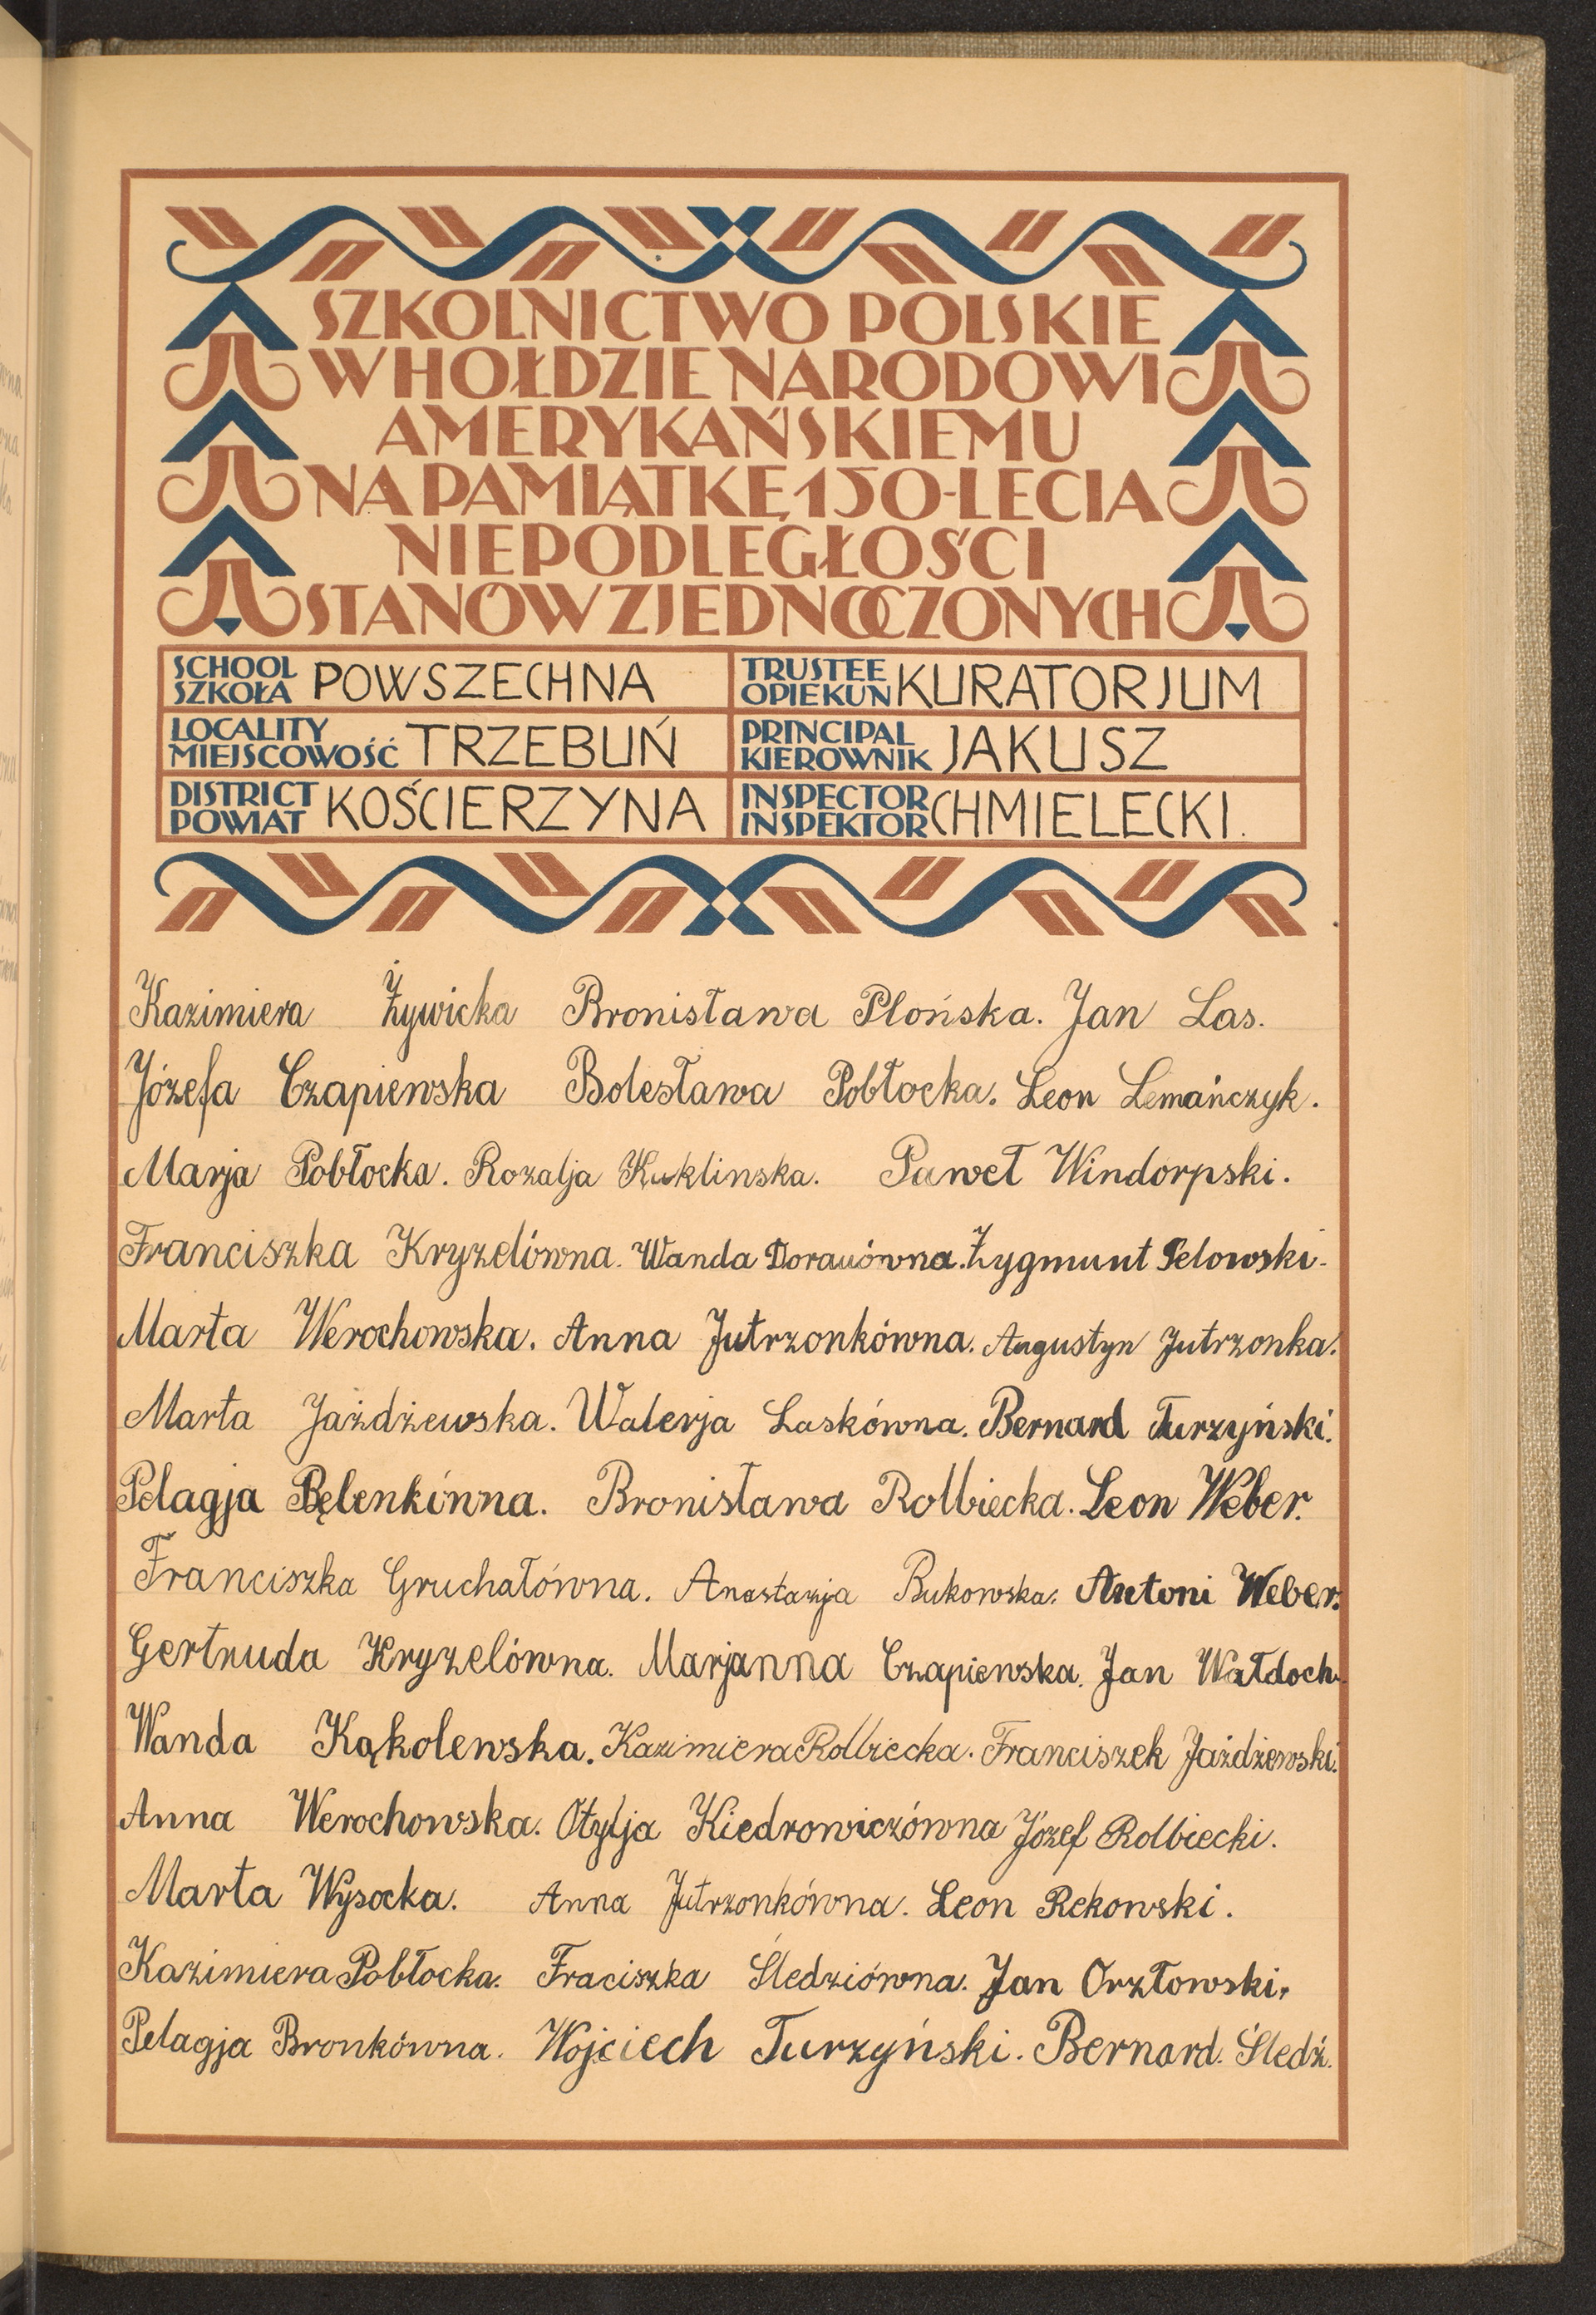 SZKOLNICTWO POLSKIE
W HOŁDZIE NARODOWI
AMERYKAŃSKIEMU
NA PAMIĄTKĘ 150-LECIA
NIEPODLEGŁOŚCI
STANÓW ZJEDNOCZONYCH
SCHOOL SZKOŁA POWSZECHNA
TRUSTEE OPIEKUN KURATORJUM
LOCALITY MIEJSCOWOŚĆ TRZEBUŃ
PRINCIPAL KIEROWNIK JAKUSZ
DISTRICT POWIAT KOŚCIERZYNA
INSPECTOR INSPEKTOR CHMIELECKI.
Kazimiera Żywicka Bronisława Płońska. Jan Las.
Józefa Czapiewska Bolesława Pobłocka. Leon Lemańczyk.
Marja Pobłocka. Rozalja Kuklinska. Paweł Windorpski.
Franciszka Kryzelówna. Wanda Dorauówna. Zygmunt Pelowski.
Marta Werochowska. Anna Jutrzonkówna. Augustyn Jutrzonka.
Marta Jażdżewska. Walerja Laskówna. Bernard Turzyński.
Pelagja Bęlenkówna. Bronisława Rolbiecka. Leon Weber.
Franciszka Gruchałówna. Anastazja Bukowska. Antoni Weber.
Gertruda Kryzelówna. Marjanna Czapiewska. Jan Wałdoch.
Wanda Kąkolewska. Kazimiera Rolbiecka. Franciszek Jażdżewski.
Anna Werochowska. Otylja Kiedrowiczówna Józef Rolbiecki.
Marta Wysocka. Anna Jutrzonkówna. Leon Rekowski.
Kazimiera Pobłocka. Fraciszka Śledziówna. Jan Orzłowski.
Pelagja Bronkówna. Wojciech Turzyński. Bernard. Śledź.